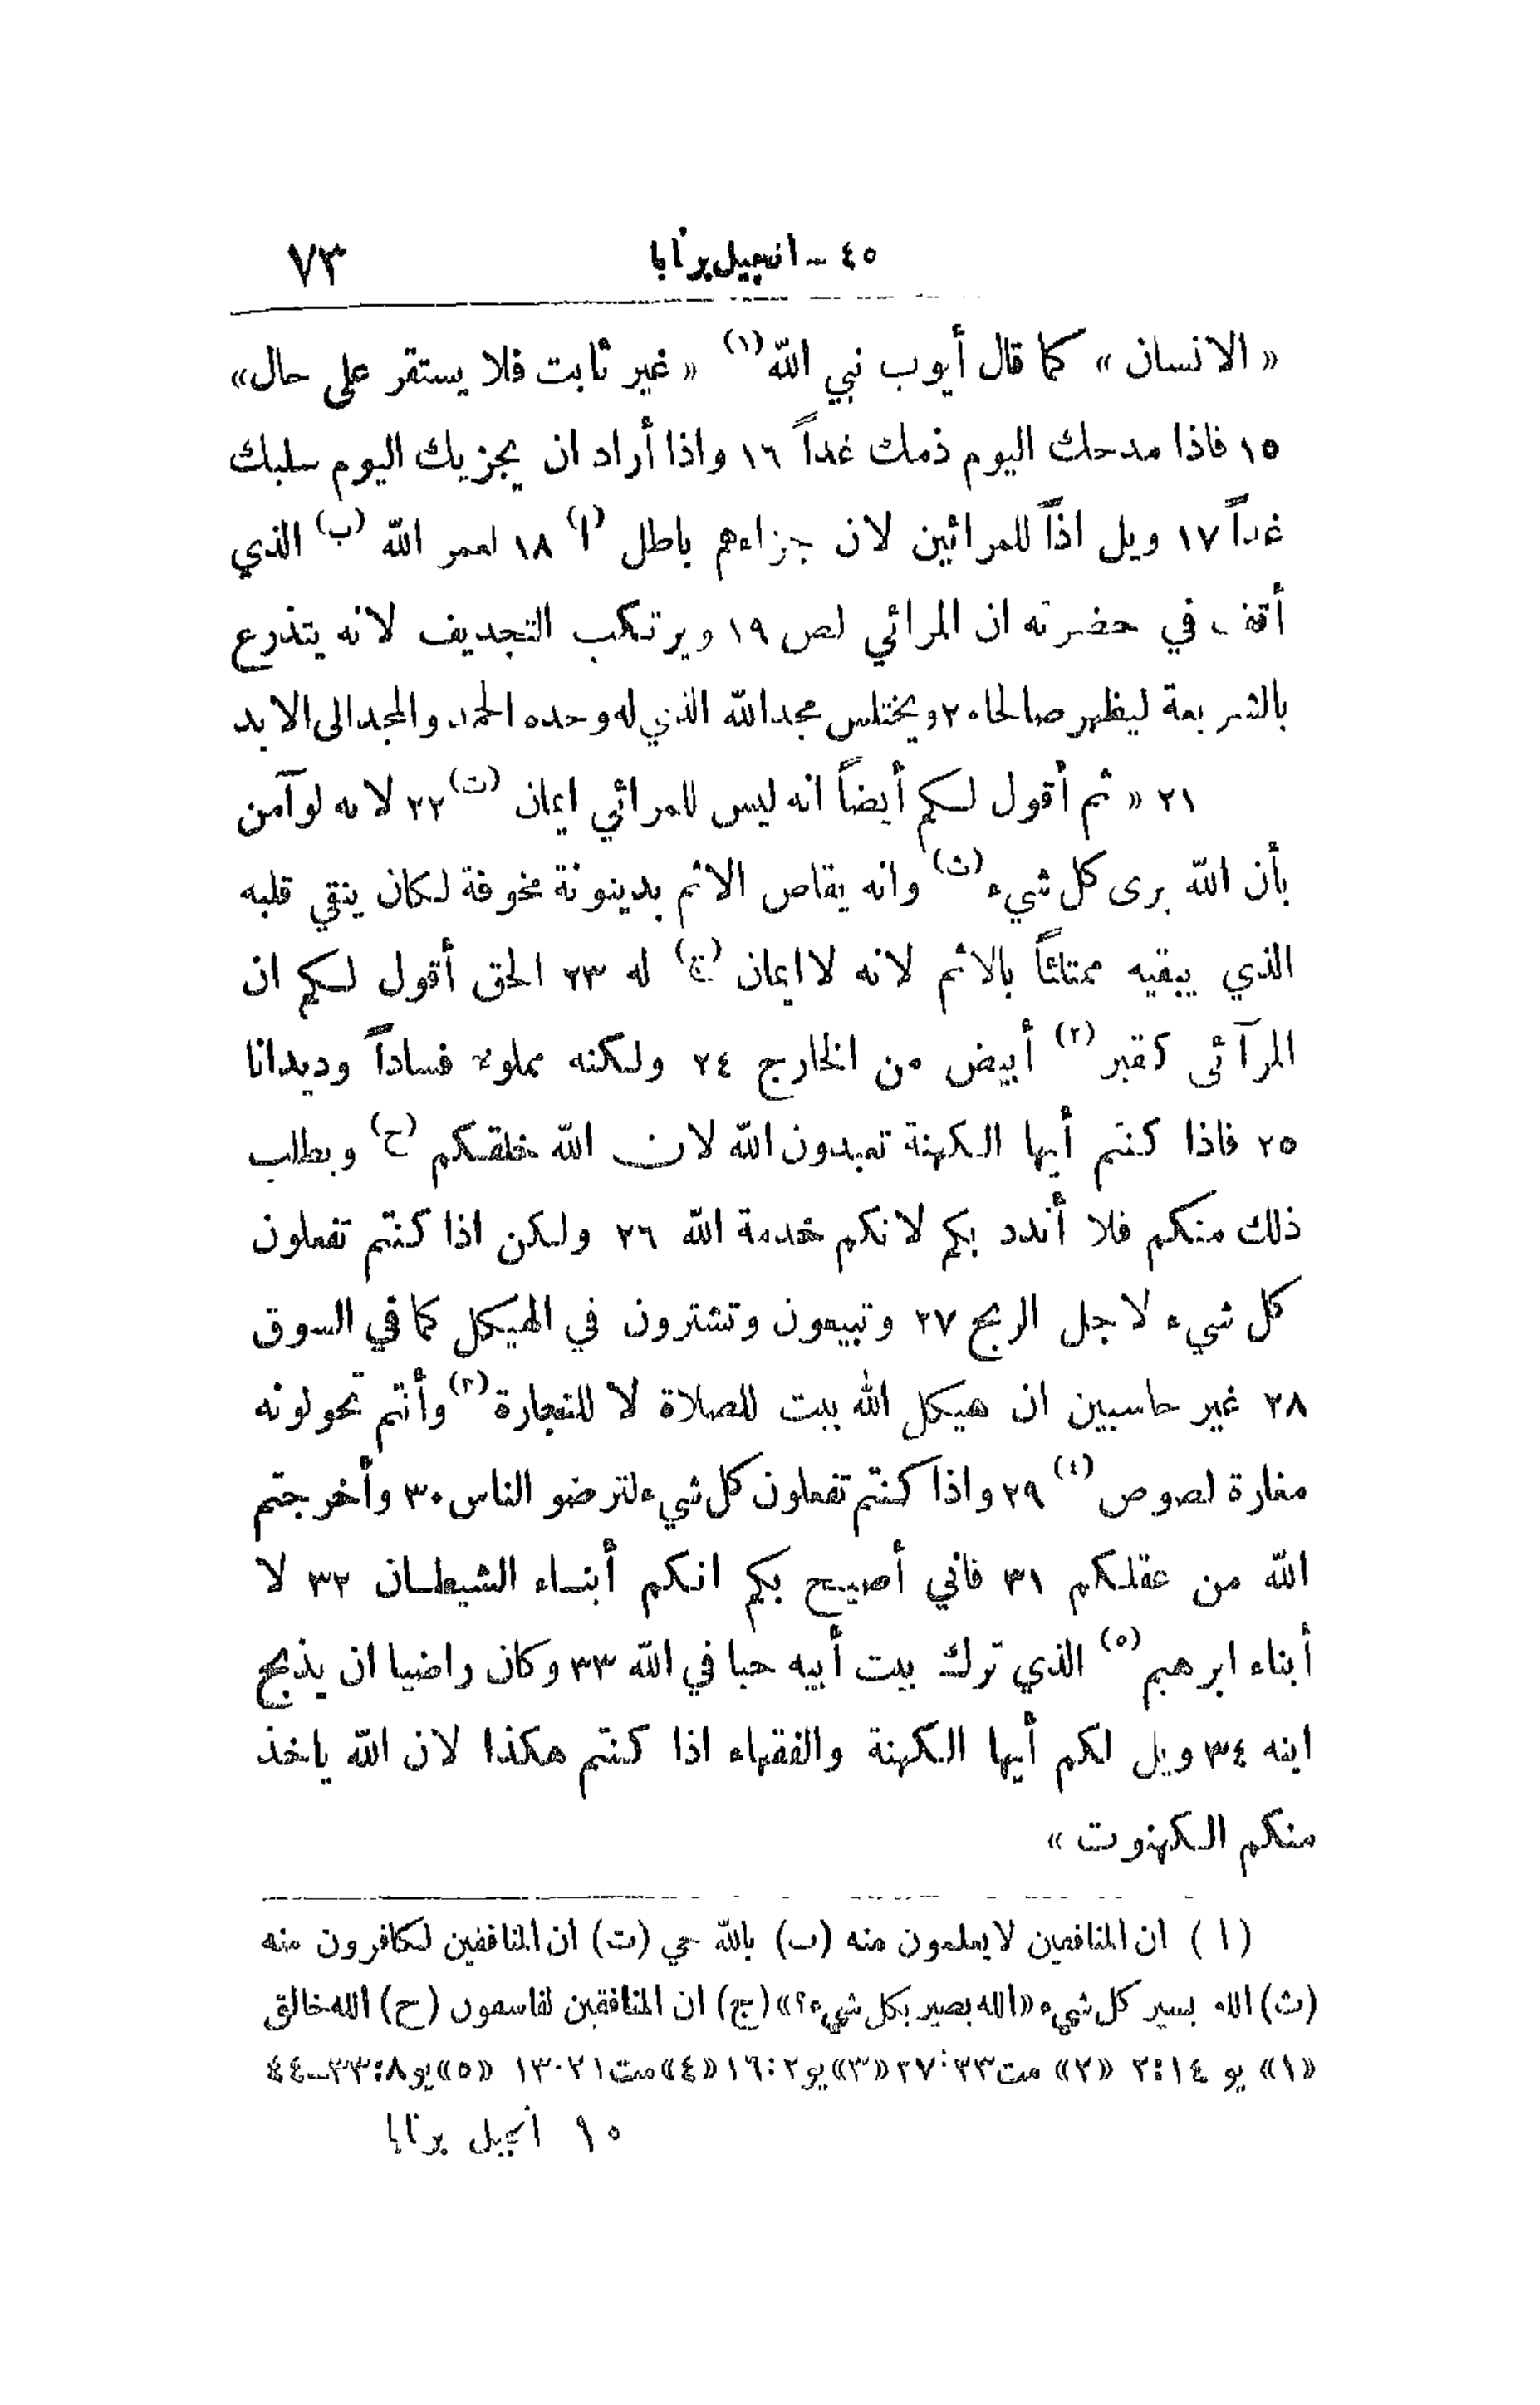 ٤٥ – انجيل برنابا ٧٣
« الانسان » كما قال أيوب نبي الله (١) « غير ثابت فلا يستقر على حال»
١٥ فاذا مدحك اليوم ذمك غداً ١٦ واذا أراد ان يجزيك اليوم سلبك
غداً ١٧ ويل اذاً للمرائين لان جزاءهم باطل (ا) ١٨ لعمر الله (ب) الذي
أقف في حضرته ان المرائي لص ١٩ ويرتكب التجديف لانه يتذرع
بالشريعة ليظهر صالحا ٢٠ ويختلس مجد الله الذي له وحده الحمد والمجد الى الابد
٢١ « ثم أقول لكم أيضاً انه ليس للمرائي ايمان (ت) ٢٢ لانه لو آمن
بأن الله يرى كل شيء (ث) وانه يقاص الاثم بدينونة مخوفة لكان ينقي قلبه
الذي يبقيه ممتلئاً بالاثم لانه لا ايمان (ج) له ٢٣ الحق أقول لكم ان
المرآئى كقبر (٢) أبيض من الخارج ٢٤ ولكنه مملوء فساداً وديدانا
٢٥ فاذا كنتم أيها الكهنة تعبدون الله لان الله خلقكم (ح) ويطلب
ذلك منكم فلا أندد بكم لانكم خدمة الله ٢٦ ولكن اذا كنتم تفعلون
كل شيء لاجل الربح ٢٧ وتبيعون وتشترون في الهيكل كما في السوق
٢٨ غير حاسبين ان هيكل الله بيت للصلاة لا للتجارة (٣) وأنتم تحولونه
مغارة لصوص (٤) ٢٩ واذا كنتم تفعلون كل شيء لترضو الناس ٣٠ وأخرجتم
الله من عقلكم ٣١ فاني أصيح بكم انكم أبناء الشيطان ٣٢ لا
أبناء ابرهيم (٥) الذي ترك بيت أبيه حبا في الله ٣٣ وكان راضيا ان يذبح
ابنه ٣٤ ويل لكم أيها الكهنة والفقهاء اذا كنتم هكذا لان الله ياخذ
منكم الكهنوت »
(ا) ان المنافقين لا يعلمون منه (ب) بالله حي (ت) ان المنافقين لكافرون منه
(ث) الله بسير كل شيء «الله بصير بكل شيء؟» (ج) ان المنافقين لفاسقون (ح) الله خالق
«١» يو ١٤:٢ «٢» مت ٢٣:٢٧ «٣» يو ٢:١٦ «٤» مت ٢١:١٣ «٥» يو ٨:٣٣–٤٤
١٠ انجيل برنابا